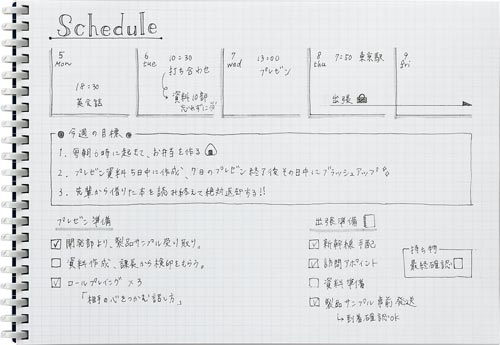 Schedule
5 Mon
18:30
英会話
6 tue
10:30
打ち合わせ
資料10部
忘れずに!!
7 wed
13:00
プレゼン
8 thu
7:50 東京駅
出張
9 fri
今週の目標
1. 毎朝6時に起きて、お弁当を作る
2. プレゼン資料5日中に作成、7日のプレゼン終了後その日中にブラッシュアップ
3. 先輩から借りた本を読み終えて絶対返却する!!
プレゼン準備
開発部より、製品サンプル受け取り。
資料作成、課長から検印をもらう。
ロールプレイング×3
「相手の心をつかむ話し方」
出張準備
新幹線手配
訪問アポイント
資料準備
製品サンプル事前発送
↳到着確認OK
持ち物
最終確認